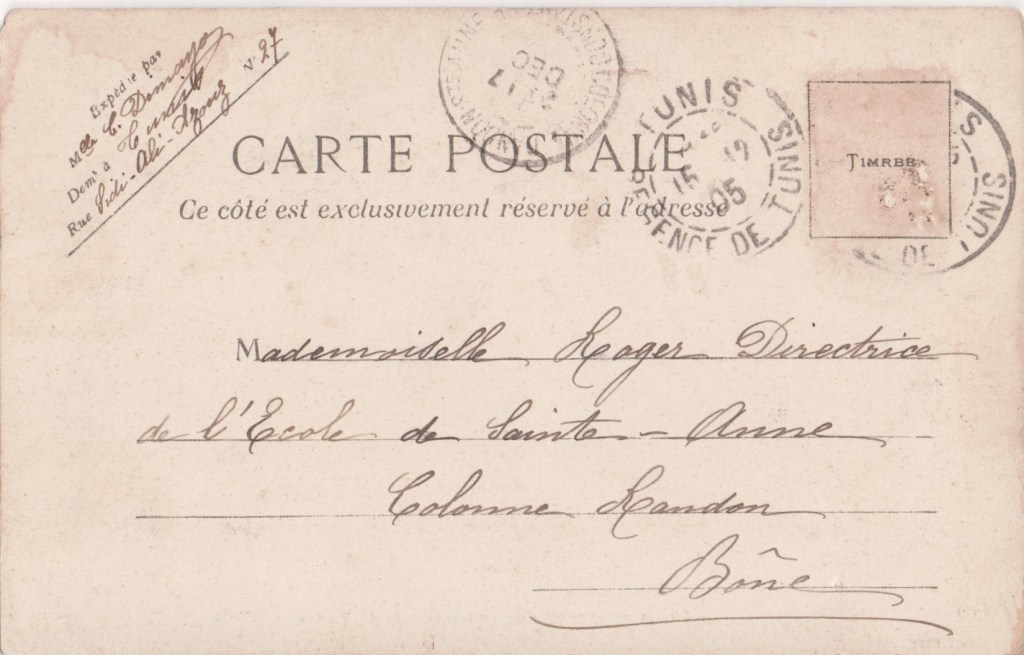 Expédié par
Mlle C. Dimayo
Demt à Tunis
Rue Sidi-Ali-Azouz N° 27
CARTE POSTALE
Ce côté est exclusivement réservé à l'adresse
17
DEC
TUNIS
15
12
05
REGENCE DE TUNIS
TIMBRE
TUNIS
DE
Mademoiselle Roger Directrice
de l'Ecole de Sainte-Anne
Colonne Randon
Bône